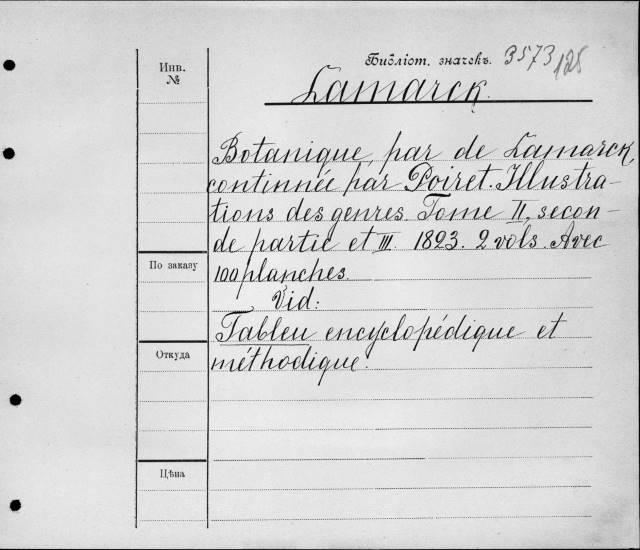 Инв.
№
Библіот. значекъ. 3573/125
Lamarck.
Botanique, par de Lamarck,
continnée par Poiret. Illustra-
tions des genres. Tome II, secon-
de partie et III. 1823. 2 vols. Avec
100 planches.
Vid:
Tableu encyclopédique et
méthodique.
По заказу
Откуда
Цѣна